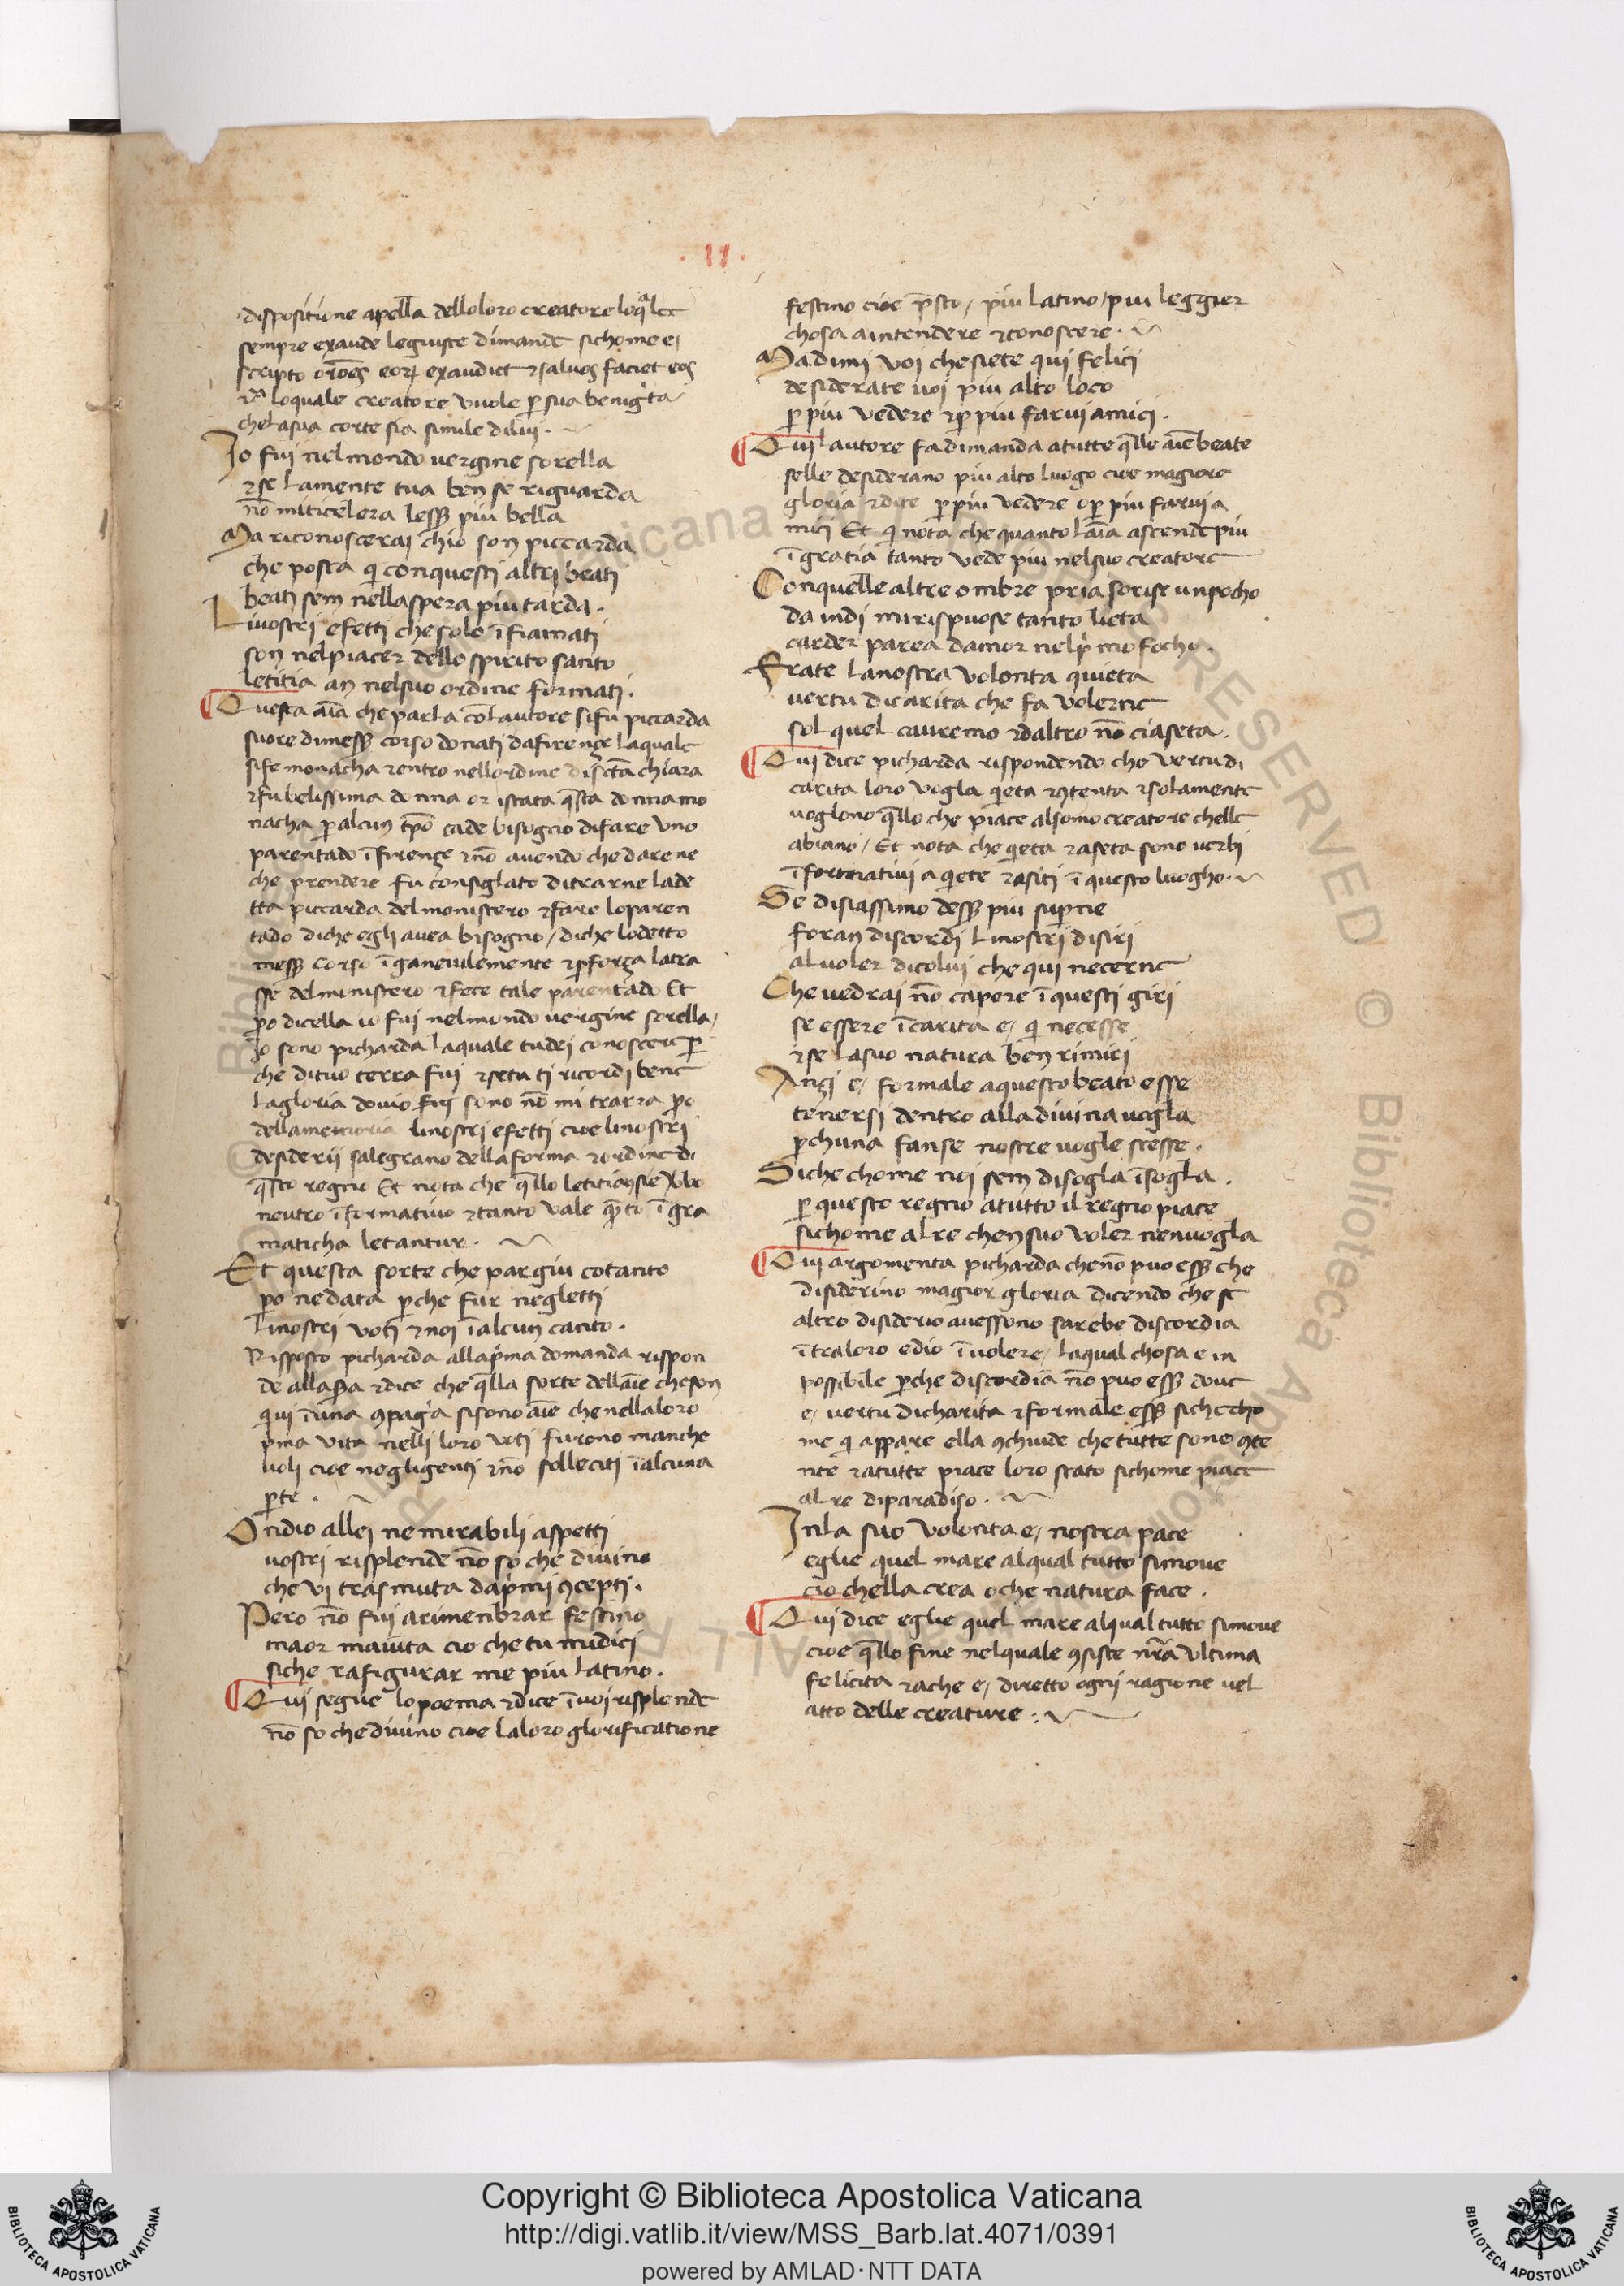 · 11 ·
dispositione apella delloloro creatore loqͣle
sempre exaude legiuste dimande sichome e/
scripto or̄oēs eoꝝ exaudiet ⁊ saluos faciet eos
loquale creatore vuole ꝑ sua benig̍ta
che lasua corte sia simile dilui .
Io fui nelmondo uergine sorella
⁊ se lamente tua ben se riguarda
nō miticelera lesẜ piu bella
Ma riconoscerai chio son piccarda
che posta q̍ conquesti altri beati
beati sem nellaspera piu tarda .
Linostri efetti che solo īfiamati
son nelpiacer dello spirito santo
letitia an nelsuo ordine formati .
¶ Questa aīa che parla cōl autore sifu piccarda
suore dimesẜ corso donati dafirenze laquale
sife monacha ⁊ entro nellordine di sc̄tā chiara
⁊ fu belissima donna or istata q̄sta donna mo
nacha ꝑ alcun tp̄o cade bisogno difare vno
parentado ī firenze ⁊ nō auendo che darene
che prendere fu consiglato ditrarne lade
tta piccarda del monistero ⁊ fare loparen
tado diche egli auea bisogno / diche lodetto
mesẜ corso īganeuolemente ⁊ ꝑ forza latra
sse del munistero ⁊ fece tale parentado Et
ꝑo dicella io fui nelmondo uergine sorella /
Io sono picharda laquale tudei conoscere ꝑ
che dituo terra fui ⁊ setu ti ricordi bene
lagloria douio fui sono nō mi trarra ꝑo
dellamemoria linostri efetti cioe linostri
desiderii salegrano della forma ⁊ ordine di
q̄sto regno Et nota che q̄llo letitian sie v̄bo
neutro īformatiuo ⁊ tanto vale qͣto ī gra
maticha letantur .
Et questa sorte che par giu cotanto
ꝑo nedata ꝑche fur negletti
Linostri voti ⁊ noi ī alcun canto .
Risposto picharda allap̍ma domanda rispon
de alla sc̄da ⁊ dice che q̄lla sorte dellaīe cheson
qui ī una ꝯpag̍a sisono aīe che nellaloro
p̍ma vita nelli loro voti furono manche
uoli cioe negligenti ⁊ nō solleciti ī alcuna
ꝑte .
Ondio allei ne mirabili aspetti
uostri risplende nō so che diuino
che vi trasmuta dap̍mi ꝯcepti .
Pero nō fui arimenbrar festino
maor maiuta cio che tu midici
siche rafigurar me piu latino .
¶ Qui segue lo poema ⁊ dice ī uoi risplende
nō so che diuino cioe laloro glorificatione
festino cioe p̄sto / piu latino / piu leggier
chosa aintendere ⁊ conoscere .
Ma dimi voi che siete qui felici
desiderate uoi piu alto loco
ꝑ piu vedere ⁊ ꝑ piu farui amici .
¶ Qui lautore fa dimanda atutte q̄lle aīe beate
selle desiderano piu alto luogo cioe magiore
gloria ⁊ dice ꝑ piu vedere o ꝑ piu farui a
mici Et q̍ nota che quanto laīa ascende piu
ī gratia tanto vede piu nelsuo creatore
Conquelle altre ombre pria sorise unpocho
da indi mirispuose tanto lieta
carder parea damor nelp̍mo focho .
Frate lanostra volonta quieta
uertu dicarita che fa volerne
sol quel cauremo ⁊ daltro nō ciaseta .
¶ Qui dice picharda rispondendo che vertu di
carita loro vogla q̍eta ⁊ ꝯtenta ⁊ solamente
uoglono q̄llo che piace alsomo creatore chelle
abiano / Et nota che q̍eta ⁊ aseta sono verbi
īformatiui a q̍ete ⁊ asiti ī questo luogho .
Se disiassimo desẜ piu sup̄ne
foran discordi linostri disiri
aluoler dicolui che qui necerne
Che uedrai nō capere ī questi giri
se essere ī carita e/ q̍ necesse
⁊ se lasuo natura ben rimiri
Anzi e/ formale aquesto beato esse
tenersi dentro alla diuina uogla
ꝑchuna fanse nostre uogle stesse .
Siche chome noi sem disogla ī sogla .
ꝑ questo regno atutto il regno piace
sichome alre chen suo voler nenuogla
¶ Qui argomenta picharda che nō puo esẜ che
disiderino magior gloria dicendo che se
altro disiderio auessono sarebe discordia
ī traloro edio ī uolere / laqual chosa e in
possibile ꝑche discordia nō puo esẜ doue
e/ uertu dicharita ⁊ formale esẜ siche cho
me q̍ appare ella ꝯchiude che tutte sono ꝯte
nte ⁊ atutte piace loro stato sichome piace
al re diparadiso .
Inla suo volonta e/ nostra pace
eglie quel mare alqual tutto simoue
cio chella crea oche natura face .
¶ Qui dice eglie quel mare alqual tutto simoue
cioe q̄llo fine nelquale ꝯsiste nr̄a vltima
felicita ⁊ ache e/ diretto ogni ragione uel
atto delle creature :
Copyright © Biblioteca Apostolica Vaticana
http://digi.vatlib.it/view/MSS_Barb.lat.4071/0391
powered by AMLAD·NTT DATA
BIBLIOTECA APOSTOLICA VATICANA
BIBLIOTECA APOSTOLICA VATICANA